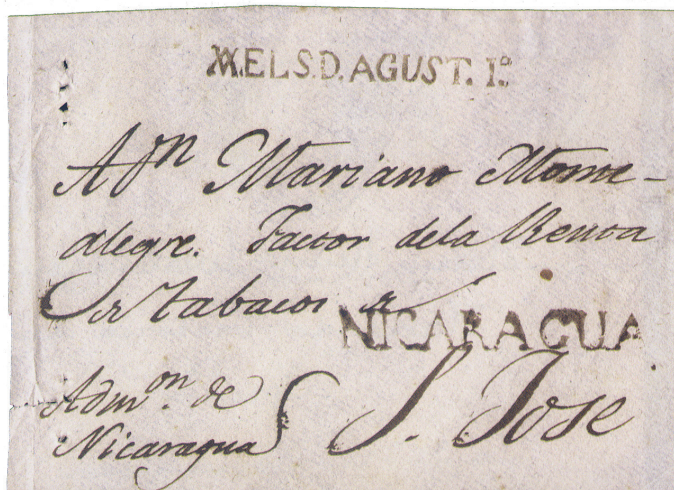 VA.EL S.D. AGUST. Iº.
A Dn Mariano Monte-
alegre. Factor de la Renta
de tabacos de
NICARAGUA
S. Jose
Admon. de
Nicaragua